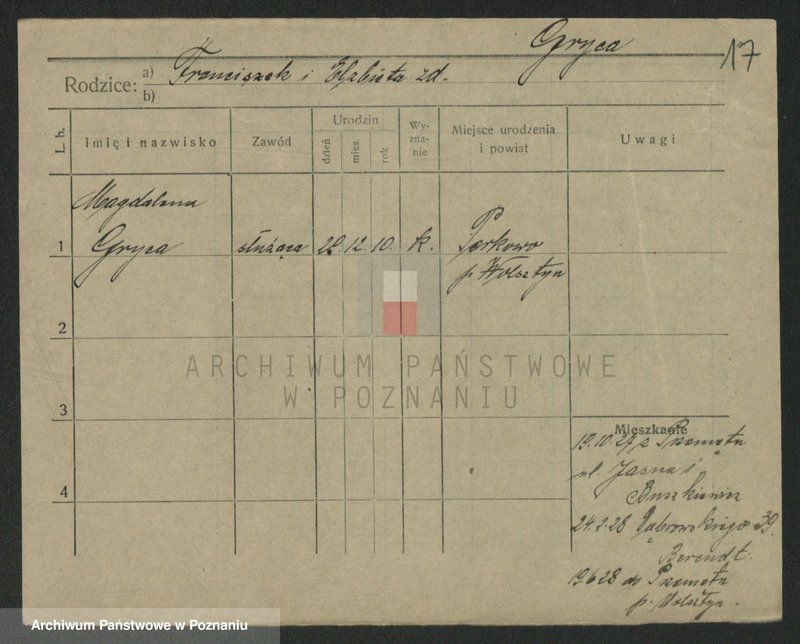 Gryca
17
Rodzice: a) Franciszek i Elżbieta zd.
b)
L. b.
Imię i nazwisko
Zawód
Urodzin
dzień
mies.
rok
Wy-
zna-
nie
Miejsce urodzenia
i powiat
Uwagi
Magdalena
1 Gryca służąca 22. 12. 10. k. Parkowo
p. Wolsztyn
2
3
4
Mieszkanie
19.10.27 z Przemęta
ul. Jasna
Buszkiewicz
24.2.28 Dąbrowskiego 39.
Berendt.
19.6.28 do Przemęta
p. Wolsztyn.
ARCHIWUM PAŃSTWOWE
W POZNANIU
Archiwum Państwowe w Poznaniu